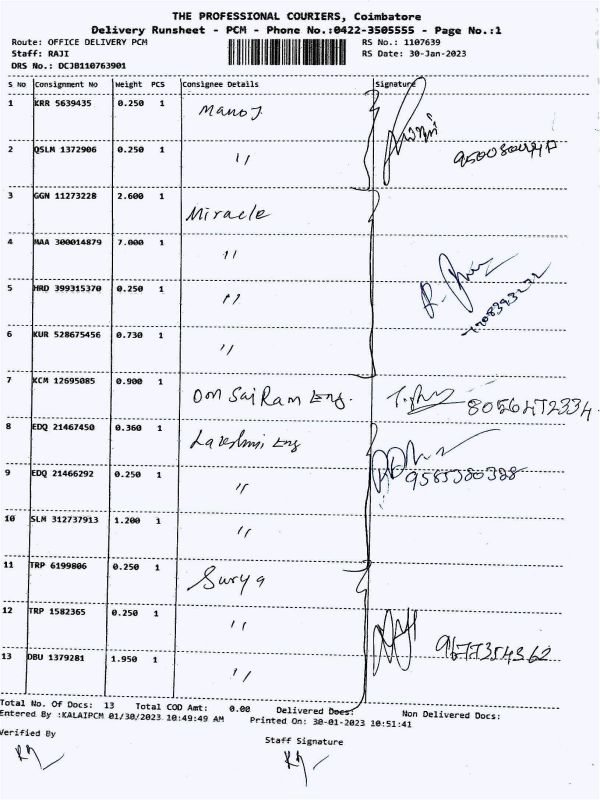 THE PROFESSIONAL COURIERS, Coimbatore
Delivery Runsheet - PCM - Phone No.:0422-3505555 - Page No.:1
Route: OFFICE DELIVERY PCM RS No.: 1107639
Staff: RAJI RS Date: 30-Jan-2023
DRS No.: DCJB110763901
S No Consignment No Weight PCS Consignee Details Signature
1 KRR 5639435 0.250 1 Manoj
2 QSLM 1372906 0.250 1 〃
3 GGN 11273228 2.600 1 Miracle
4 MAA 300014879 7.000 1 〃
5 HRD 399315370 0.250 1 〃
6 KUR 528675456 0.730 1 〃
7 KCM 12695085 0.900 1 Om Sai Ram Eng. 8056472334
8 EDQ 21467450 0.360 1 Eng
9 EDQ 21466292 0.250 1 〃 9585380388
10 SLM 312737913 1.200 1 〃
11 TRP 6199806 0.250 1 Surya
12 TRP 1582365 0.250 1 〃 9677354362
13 DBU 1379281 1.950 1 〃
Total No. Of Docs: 13 Total COD Amt: 0.00 Delivered Docs: Non Delivered Docs:
Entered By :KALAIPCM 01/30/2023 10:49:49 AM Printed On: 30-01-2023 10:51:41
Verified By Staff Signature